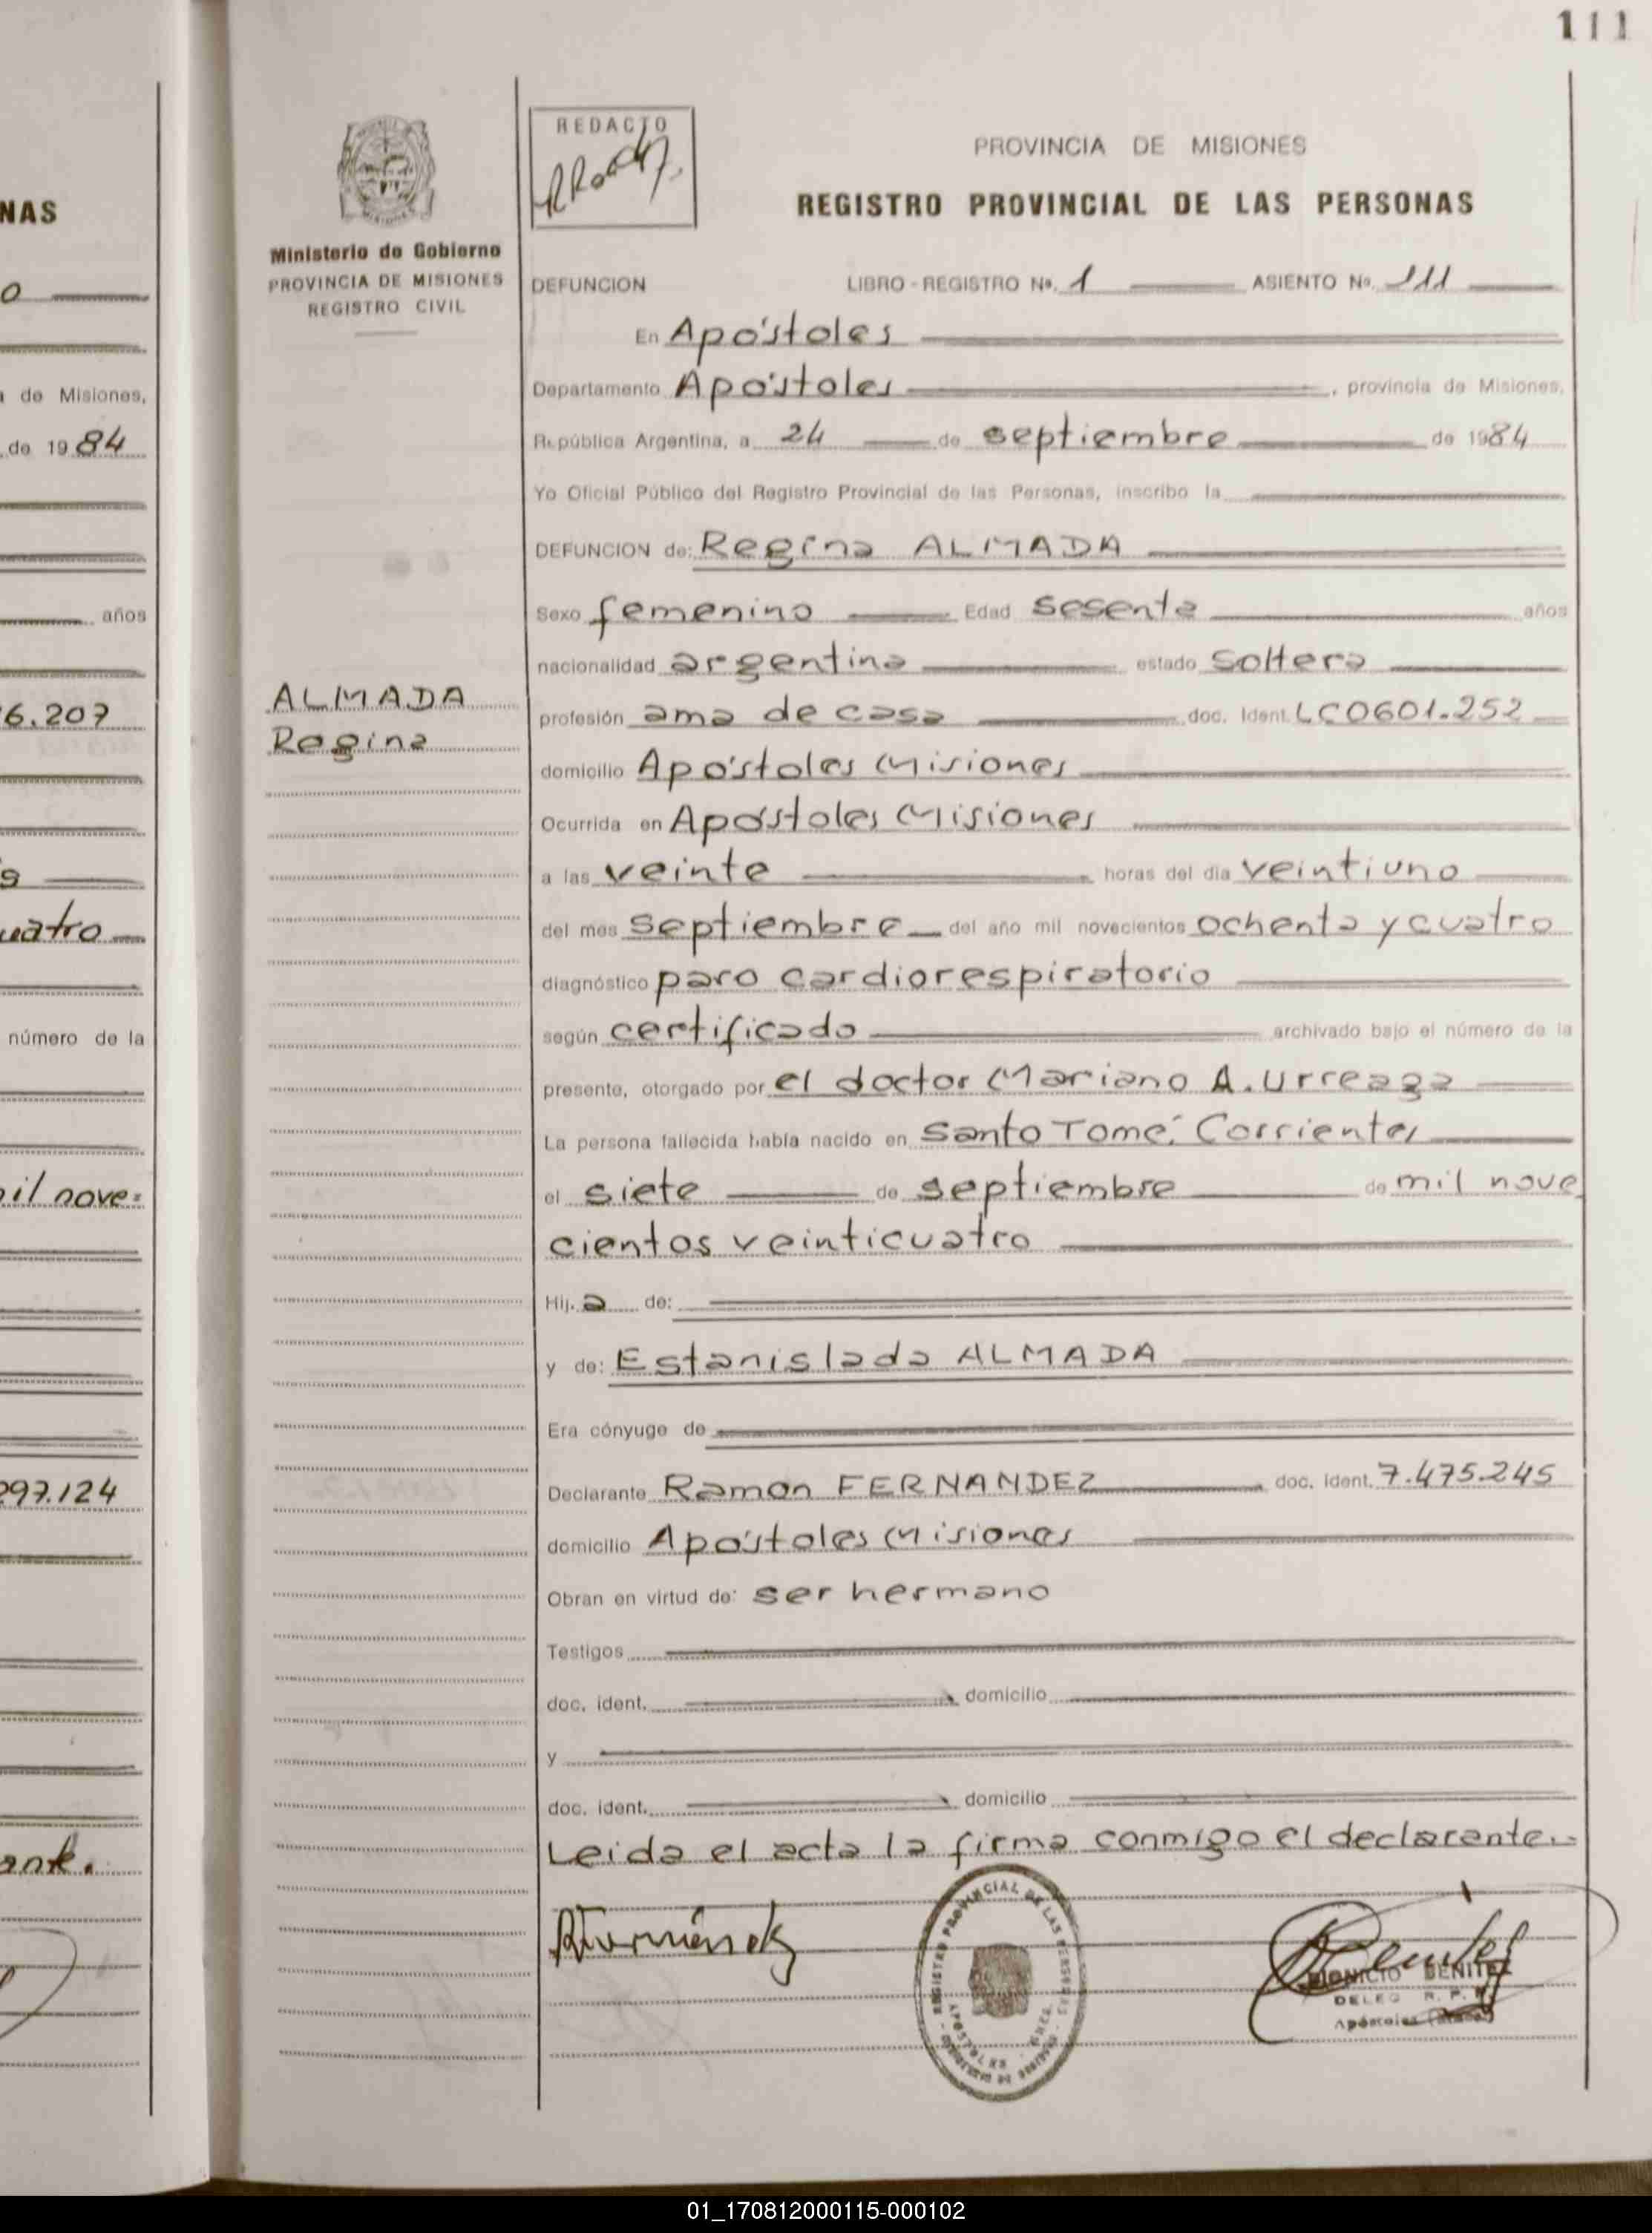 111
NAS
o
a de Misiones,
de 1984
años
6.207
s
uatro
número de la
il nove=
297.124
ante.
Ministerio de Gobierno
PROVINCIA DE MISIONES
REGISTRO CIVIL
ALMADA
Regina
REDACTO
PROVINCIA DE MISIONES
REGISTRO PROVINCIAL DE LAS PERSONAS
DEFUNCION LIBRO - REGISTRO Nº. 1 ASIENTO Nº. 111
En Apóstoles
Departamento Apóstoles, provincia de Misiones,
República Argentina, a 24 de septiembre de 1984
Yo Oficial Público del Registro Provincial de las Personas, inscribo la
DEFUNCION de: Regina ALMADA
Sexo femenino Edad sesenta años
nacionalidad argentina estado soltera
profesión ama de casa doc. Ident. LC0601.252
domicilio Apóstoles Misiones
Ocurrida en Apóstoles Misiones
a las veinte horas del día veintiuno
del mes septiembre del año mil novecientos ochenta y cuatro
diagnóstico paro cardiorespiratorio
según certificado archivado bajo el número de la
presente, otorgado por el doctor Mariano A. Urreaga
La persona fallecida había nacido en Santo Tomé. Corrientes
el siete de septiembre de mil nove
cientos veinticuatro
Hij.a de:
y de: Estanislada ALMADA
Era cónyuge de
Declarante Ramon FERNANDEZ doc. ident. 7.475.245
domicilio Apóstoles Misiones
Obran en virtud de: ser hermano
Testigos
doc. ident. domicilio
y
doc. ident. domicilio
Leida el acta la firma conmigo el declarante.-
REGISTRO PROVINCIAL DE LAS PERSONAS
APOSTOLES
DIONICIO BENITEZ
DELEG R. P. P.
Apóstoles
01_170812000115-000102